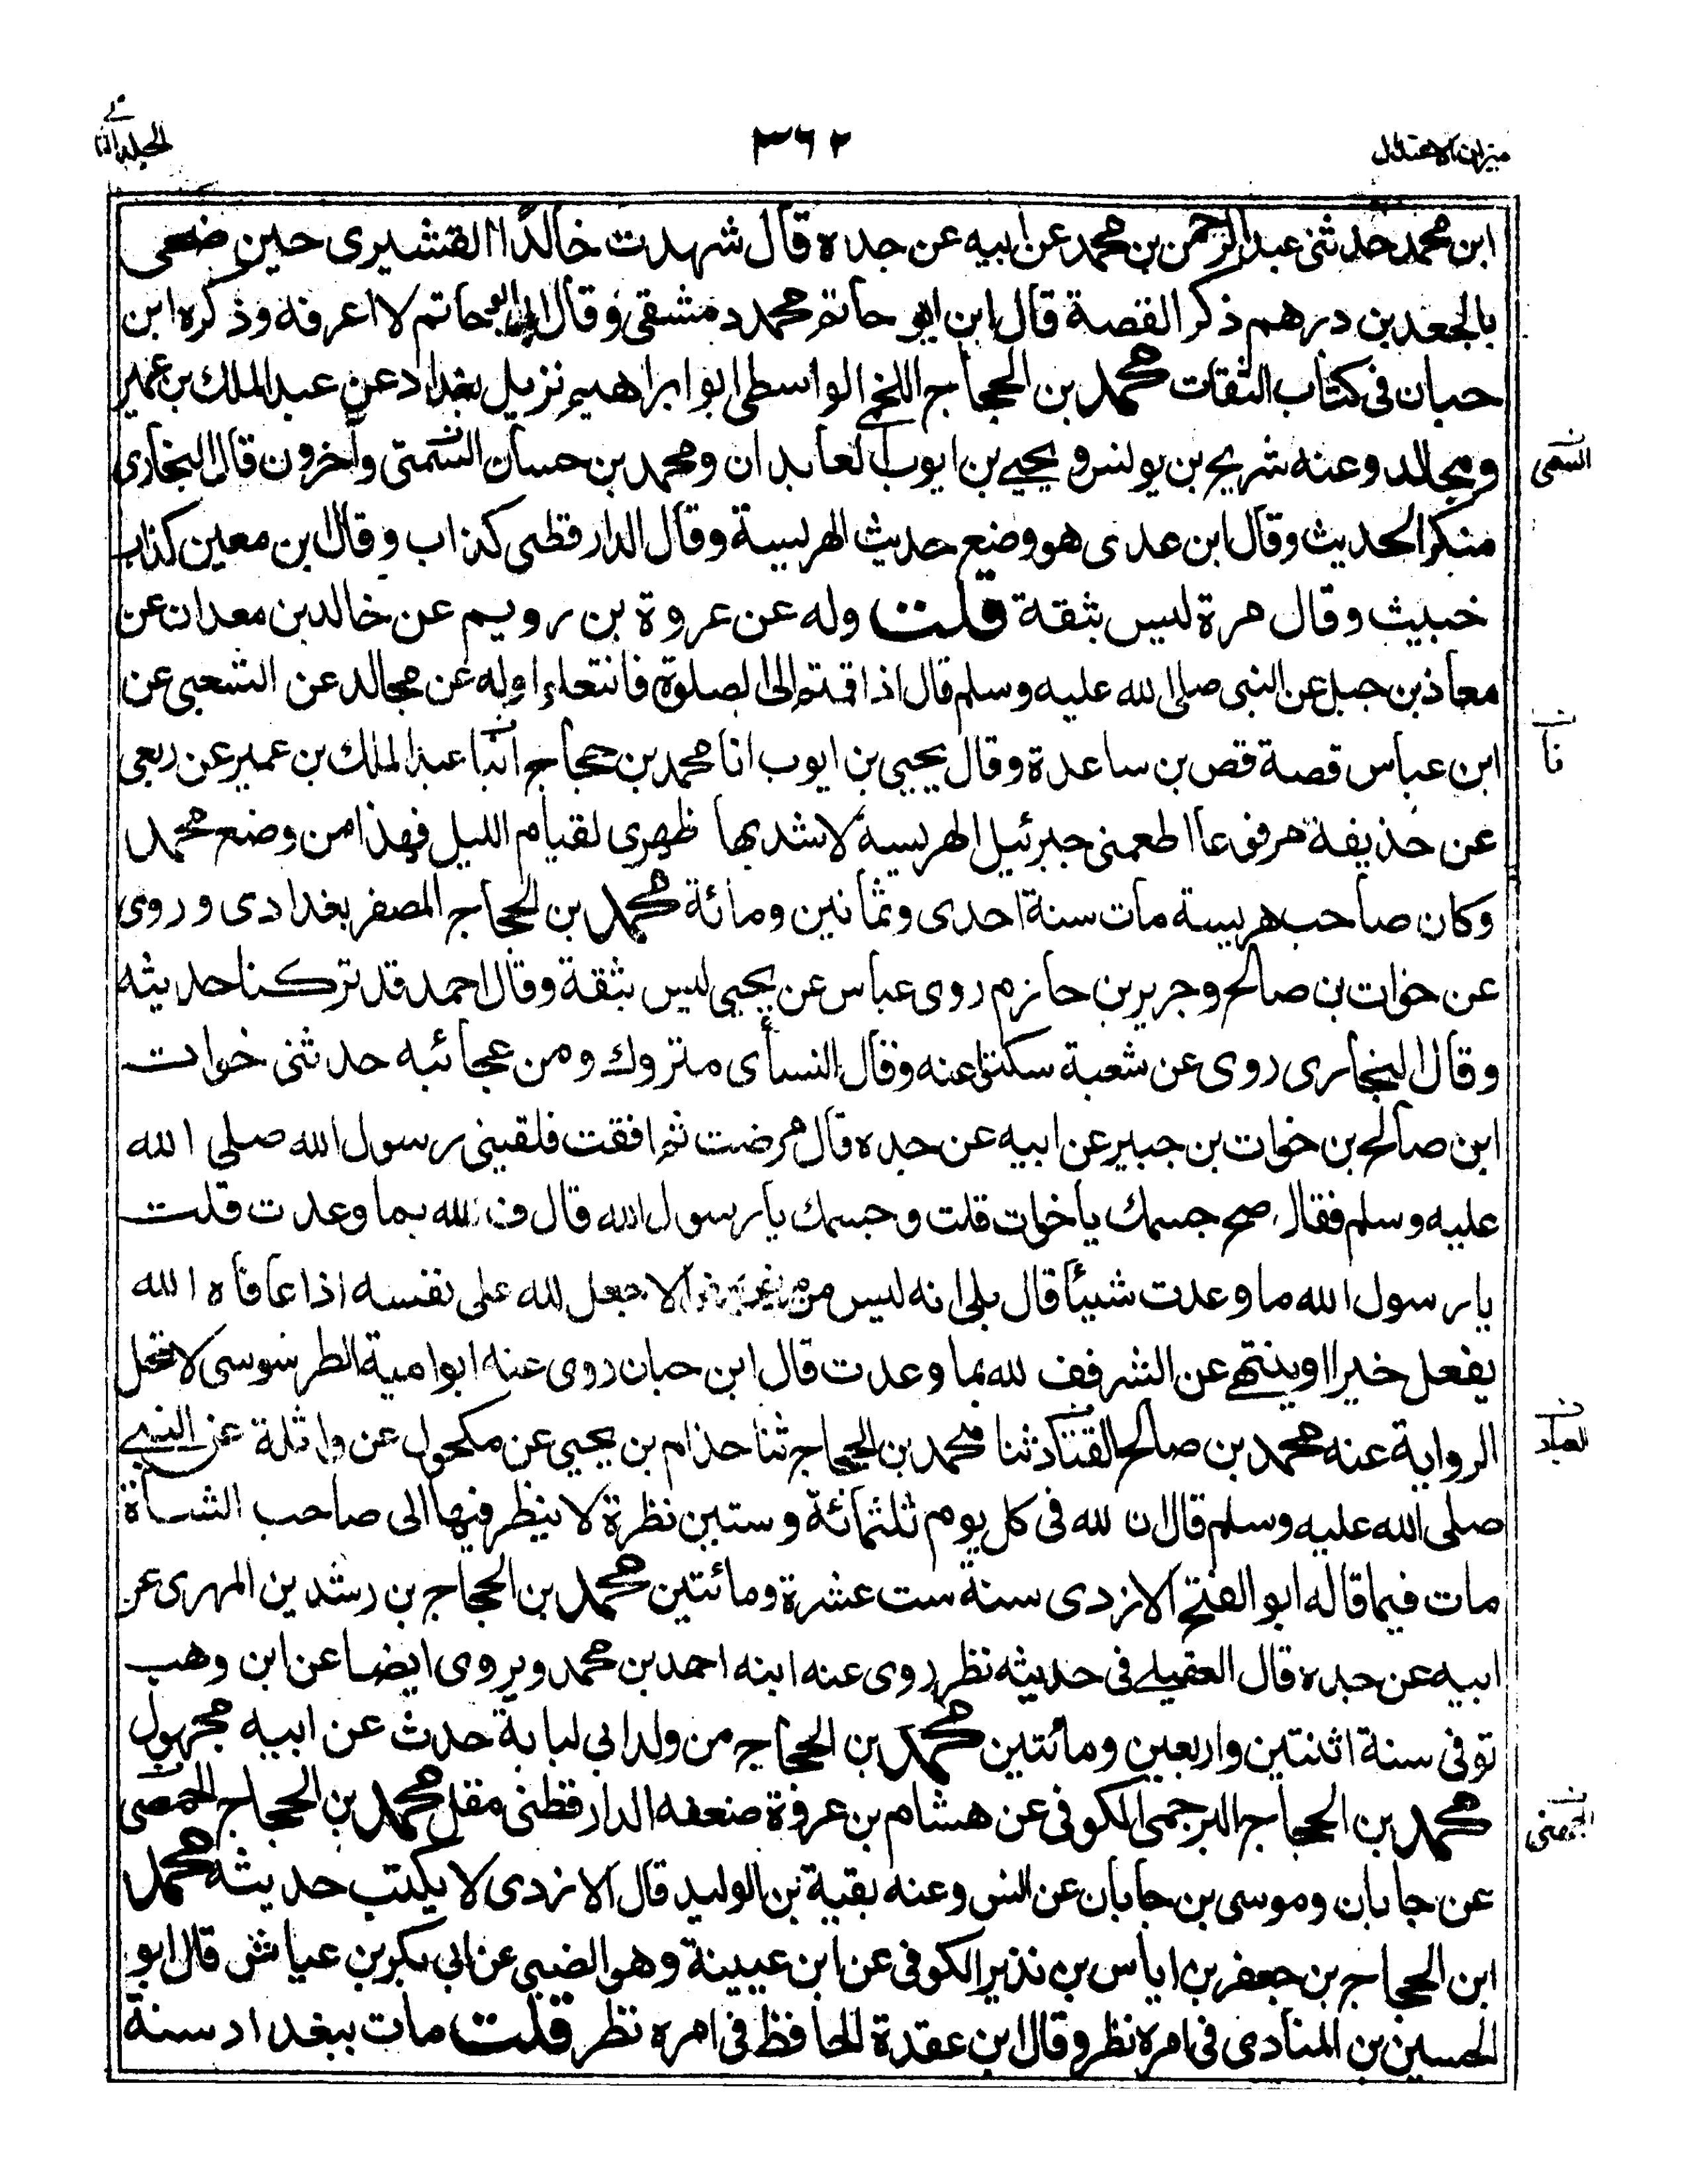 ميزان الاعتدال
٣٦٢
الجلد الثاني
ابن محمد حدثنى عبد الرحمن بن محمد عن ابيه عن جده قال شهدت خالدًا القشيرى حين ضحى
بالجعد بن درهم ذكر القصة قال ابن ابى حاتم محمد دمشقى وقال ابو حاتم لا اعرفه وذكره ابن
حبان فى كتاب الثقات محمد بن الحجاج اللخمى الواسطى ابو ابراهيم نزيل بغداد عن عبد الملك بن عمير
ومجالد وعنه شريح بن يونس و يحيى بن ايوب العابدان ومحمد بن حسان الشمتى وآخرون قال البخارى
السمتى
منكر الحديث وقال ابن عدى هو وضع حديث الهريسة وقال الدارقطنى كذاب وقال ابن معين كذاب
خبيث وقال مرة ليس بثقة قلت وله عن عروة بن رويم عن خالد بن معدان عن
معاذ بن جبل عن النبى صلى الله عليه وسلم قال اذا قمتم الى الصلوة فانتعلوا وله عن مجالد عن الشعبى عن
ابن عباس قصة قص بن ساعدة وقال يحيى بن ايوب انا محمد بن حجاج انبا عبد الملك بن عمير عن ربعى
نا
عن حذيفة مرفوعا اطعمنى جبرئيل الهريسة لاشد بها ظهرى لقيام الليل فهذا من وضع محمد
وكان صاحب هريسة مات سنة احدى وثمانين ومائة محمد بن الحجاج المصفر بغدادى وروى
عن خوات بن صالح وجرير بن حازم روى عباس عن يحيى ليس بثقة وقال احمد قد تركنا حديثه
وقال البخارى روى عن شعبة سكتوا عنه وقال النسأى متروك ومن عجائبه حدثنى خوات
ابن صالح بن خوات بن جبير عن ابيه عن جده قال مرضت ثم افقت فلقينى رسول الله صلى الله
عليه وسلم فقال صح جسمك ياخوات قلت وجسمك يارسول الله قال ف لله بما وعدت قلت
يارسول الله ما وعدت شيئا قال بلى انه ليس من مريض الا جعل لله على نفسه اذا عافاه الله
يفعل خيرا او ينتهى عن الشر فف لله بما وعدت قال ابن حبان روى عنه ابو امية الطرسوسى لا تحل
الرواية عنه محمد بن صالح القناد ثنا محمد بن الحجاج ثنا حذام بن يحيى عن مكحول عن واثلة عن النبى
صلى الله عليه وسلم قال ان لله فى كل يوم ثلثمائة وستين نظرة لا ينظر فيها الى صاحب الشاة
مات فيما قاله ابو الفتح الازدى سنة ست عشرة ومائتين محمد بن الحجاج بن رشدين المهرى عن
ابيه عن جده قال العقيلى فى حديثه نظر روى عنه ابنه احمد بن محمد ويروى ايضا عن ابن وهب
توفى سنة اثنتين واربعين ومائتين محمد بن الحجاج من ولد ابى لبابة حدث عن ابيه مجهول
محمد بن الحجاج البرجمى الكوفى عن هشام بن عروة ضعفه الدارقطنى مقل محمد بن الحجاج الحمصى
عن جابان وموسى بن جابان عن انس وعنه بقية بن الوليد قال الازدى لا يكتب حديثه محمد
ابن الحجاج بن جعفر بن اياس بن نذير الكوفى عن ابن عيينة وهو الضبى عن ابى بكر بن عياش قال ابو
الحسين بن المنادى فى امره نظر وقال ابن عقدة الحافظ فى امره نظر قلت مات ببغداد سنة